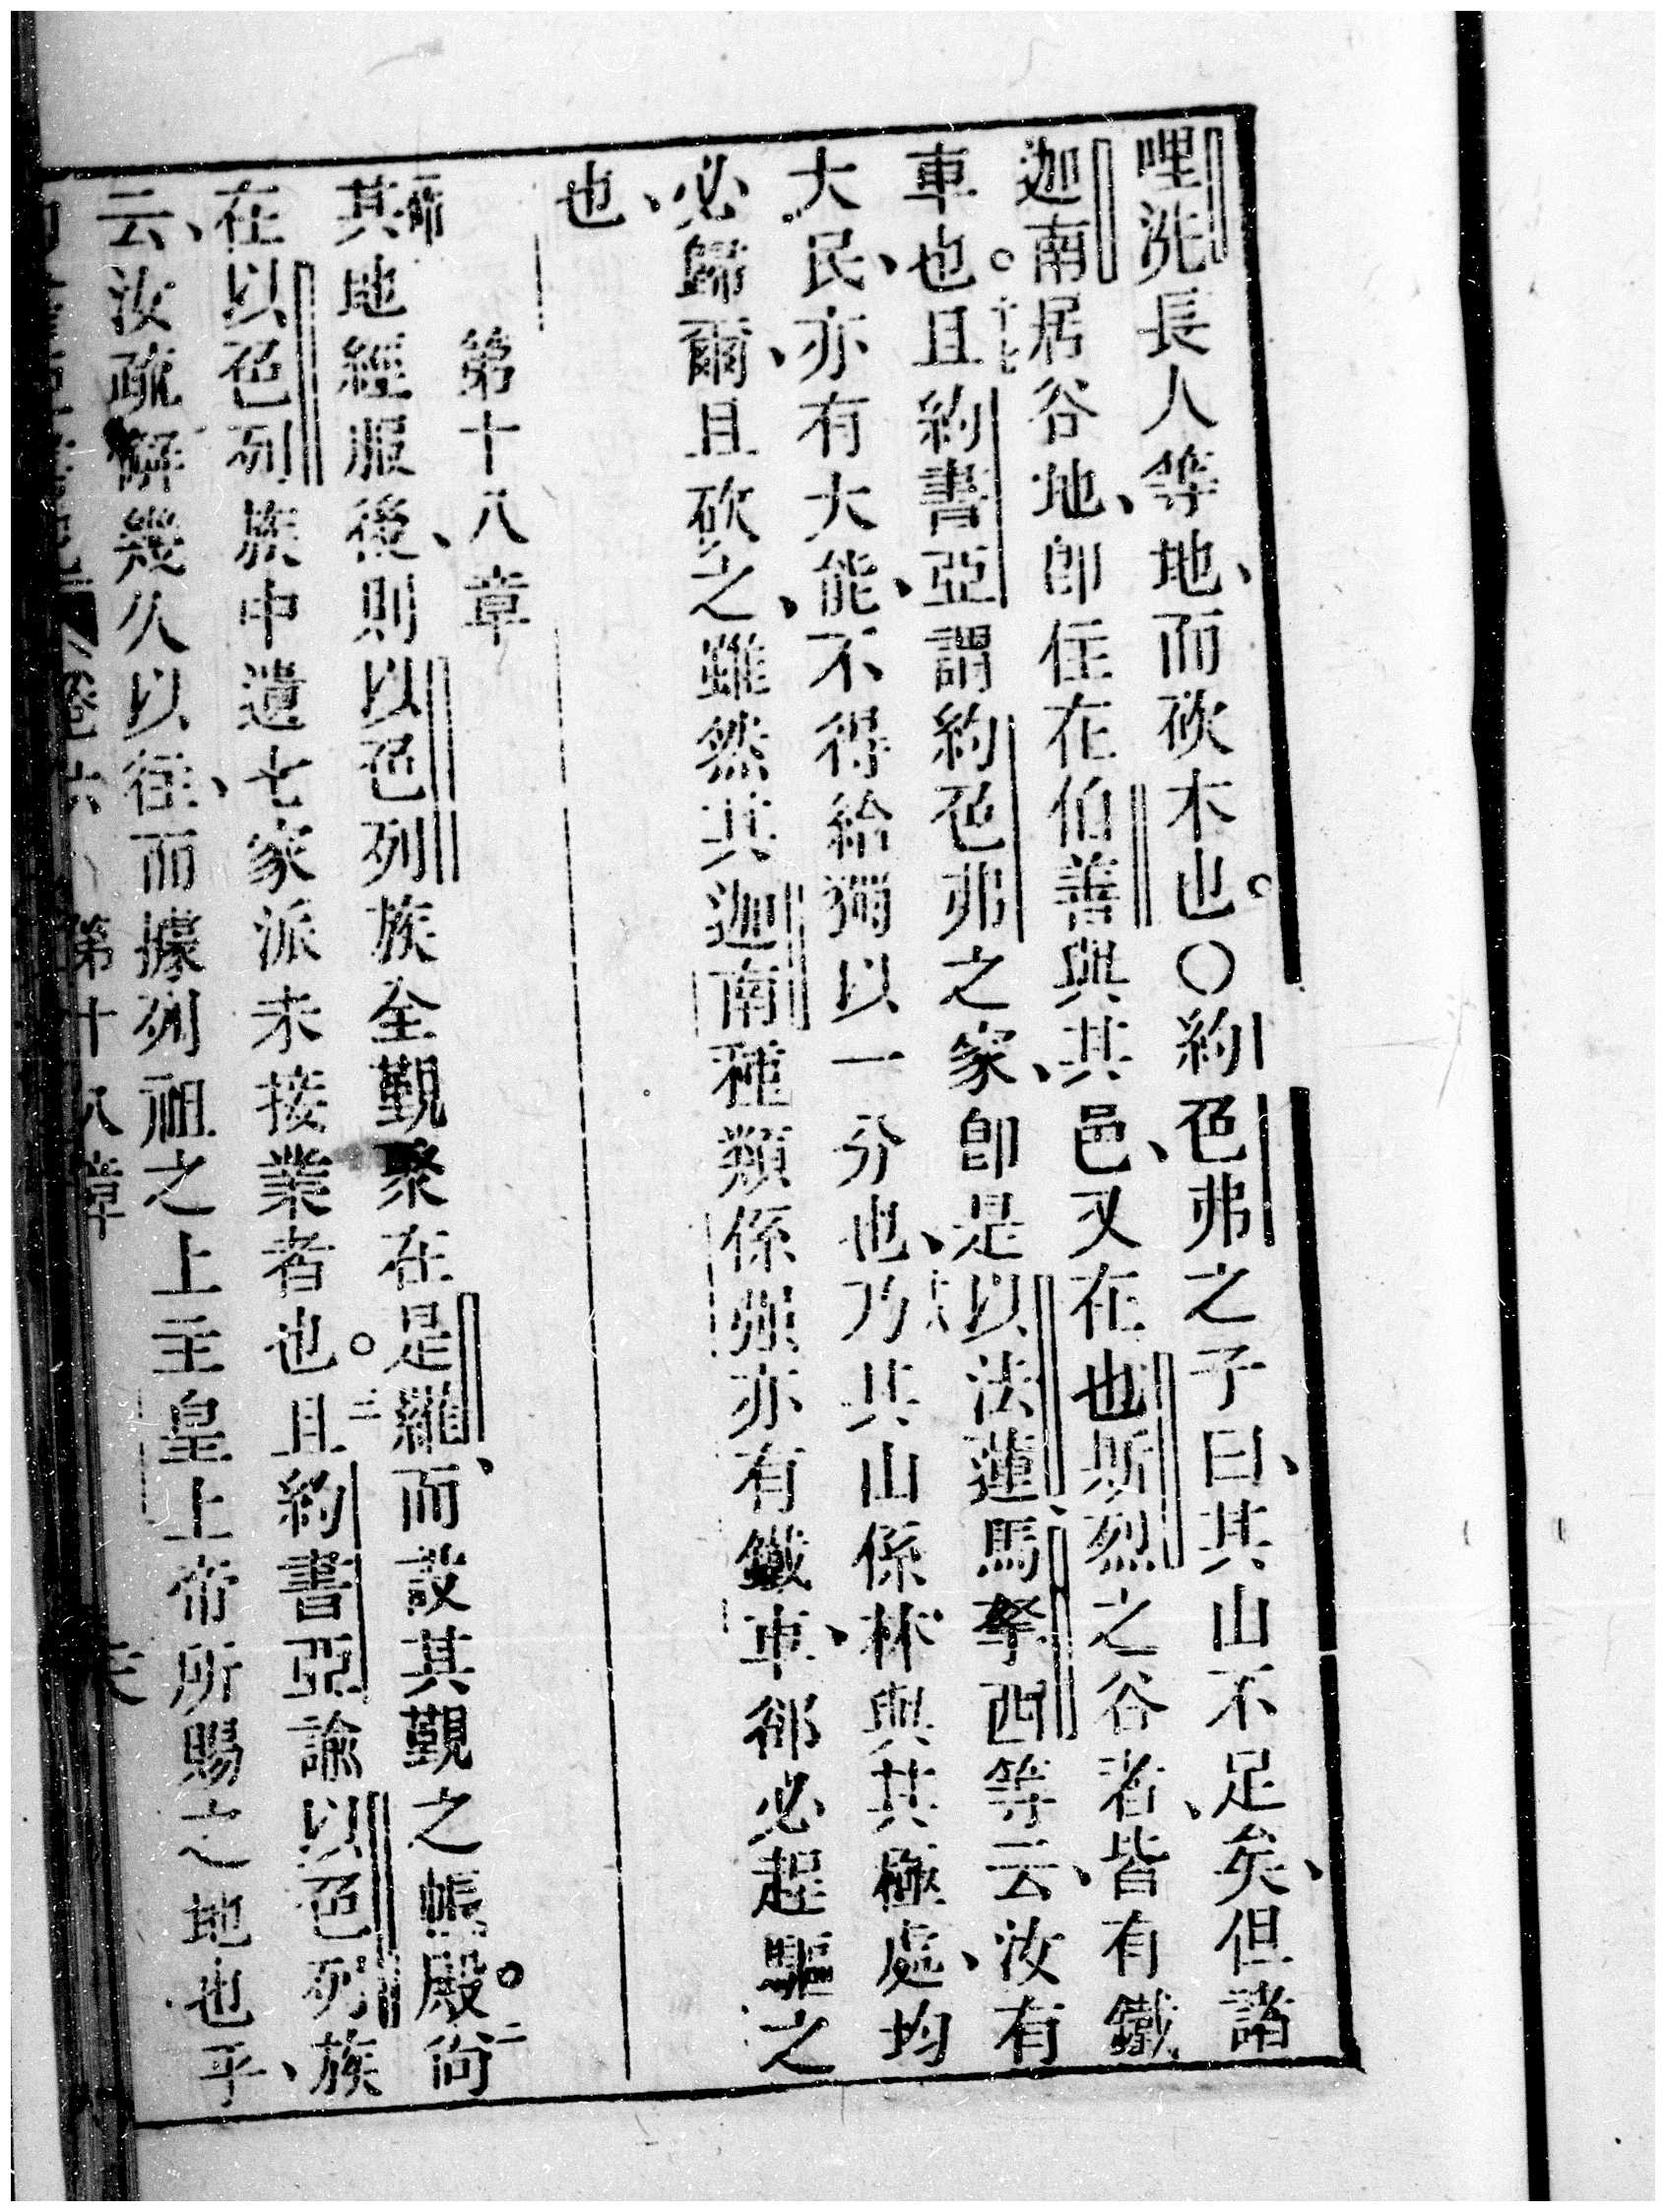 哩𠲔長人等地、而砍木也。〇約色弗之子曰、其山不足矣、但諸
迦南居谷地、即住在伯善與其邑、又在也斯烈之谷者、皆有鐵
車也。十七且約書亞謂約色弗之家、即是以法蓮、馬拿西等云、汝有
大民、亦有大能、不得給獨以一分也、十八乃其山係林與其極處、均
必歸爾、且砍之、雖然其迦南種類係强亦有鐵車、都必趕驅之
也、
第十八章
一節其地經服後、則以色列族全覲聚在是羅、而設其覲之帳殿。二尚
在以色列族中遺七家派未接業者也。三且約書亞諭以色列族
云、汝疏懈幾久以往、而據列祖之上主皇上帝所賜之地也乎、
卷六 第十八章